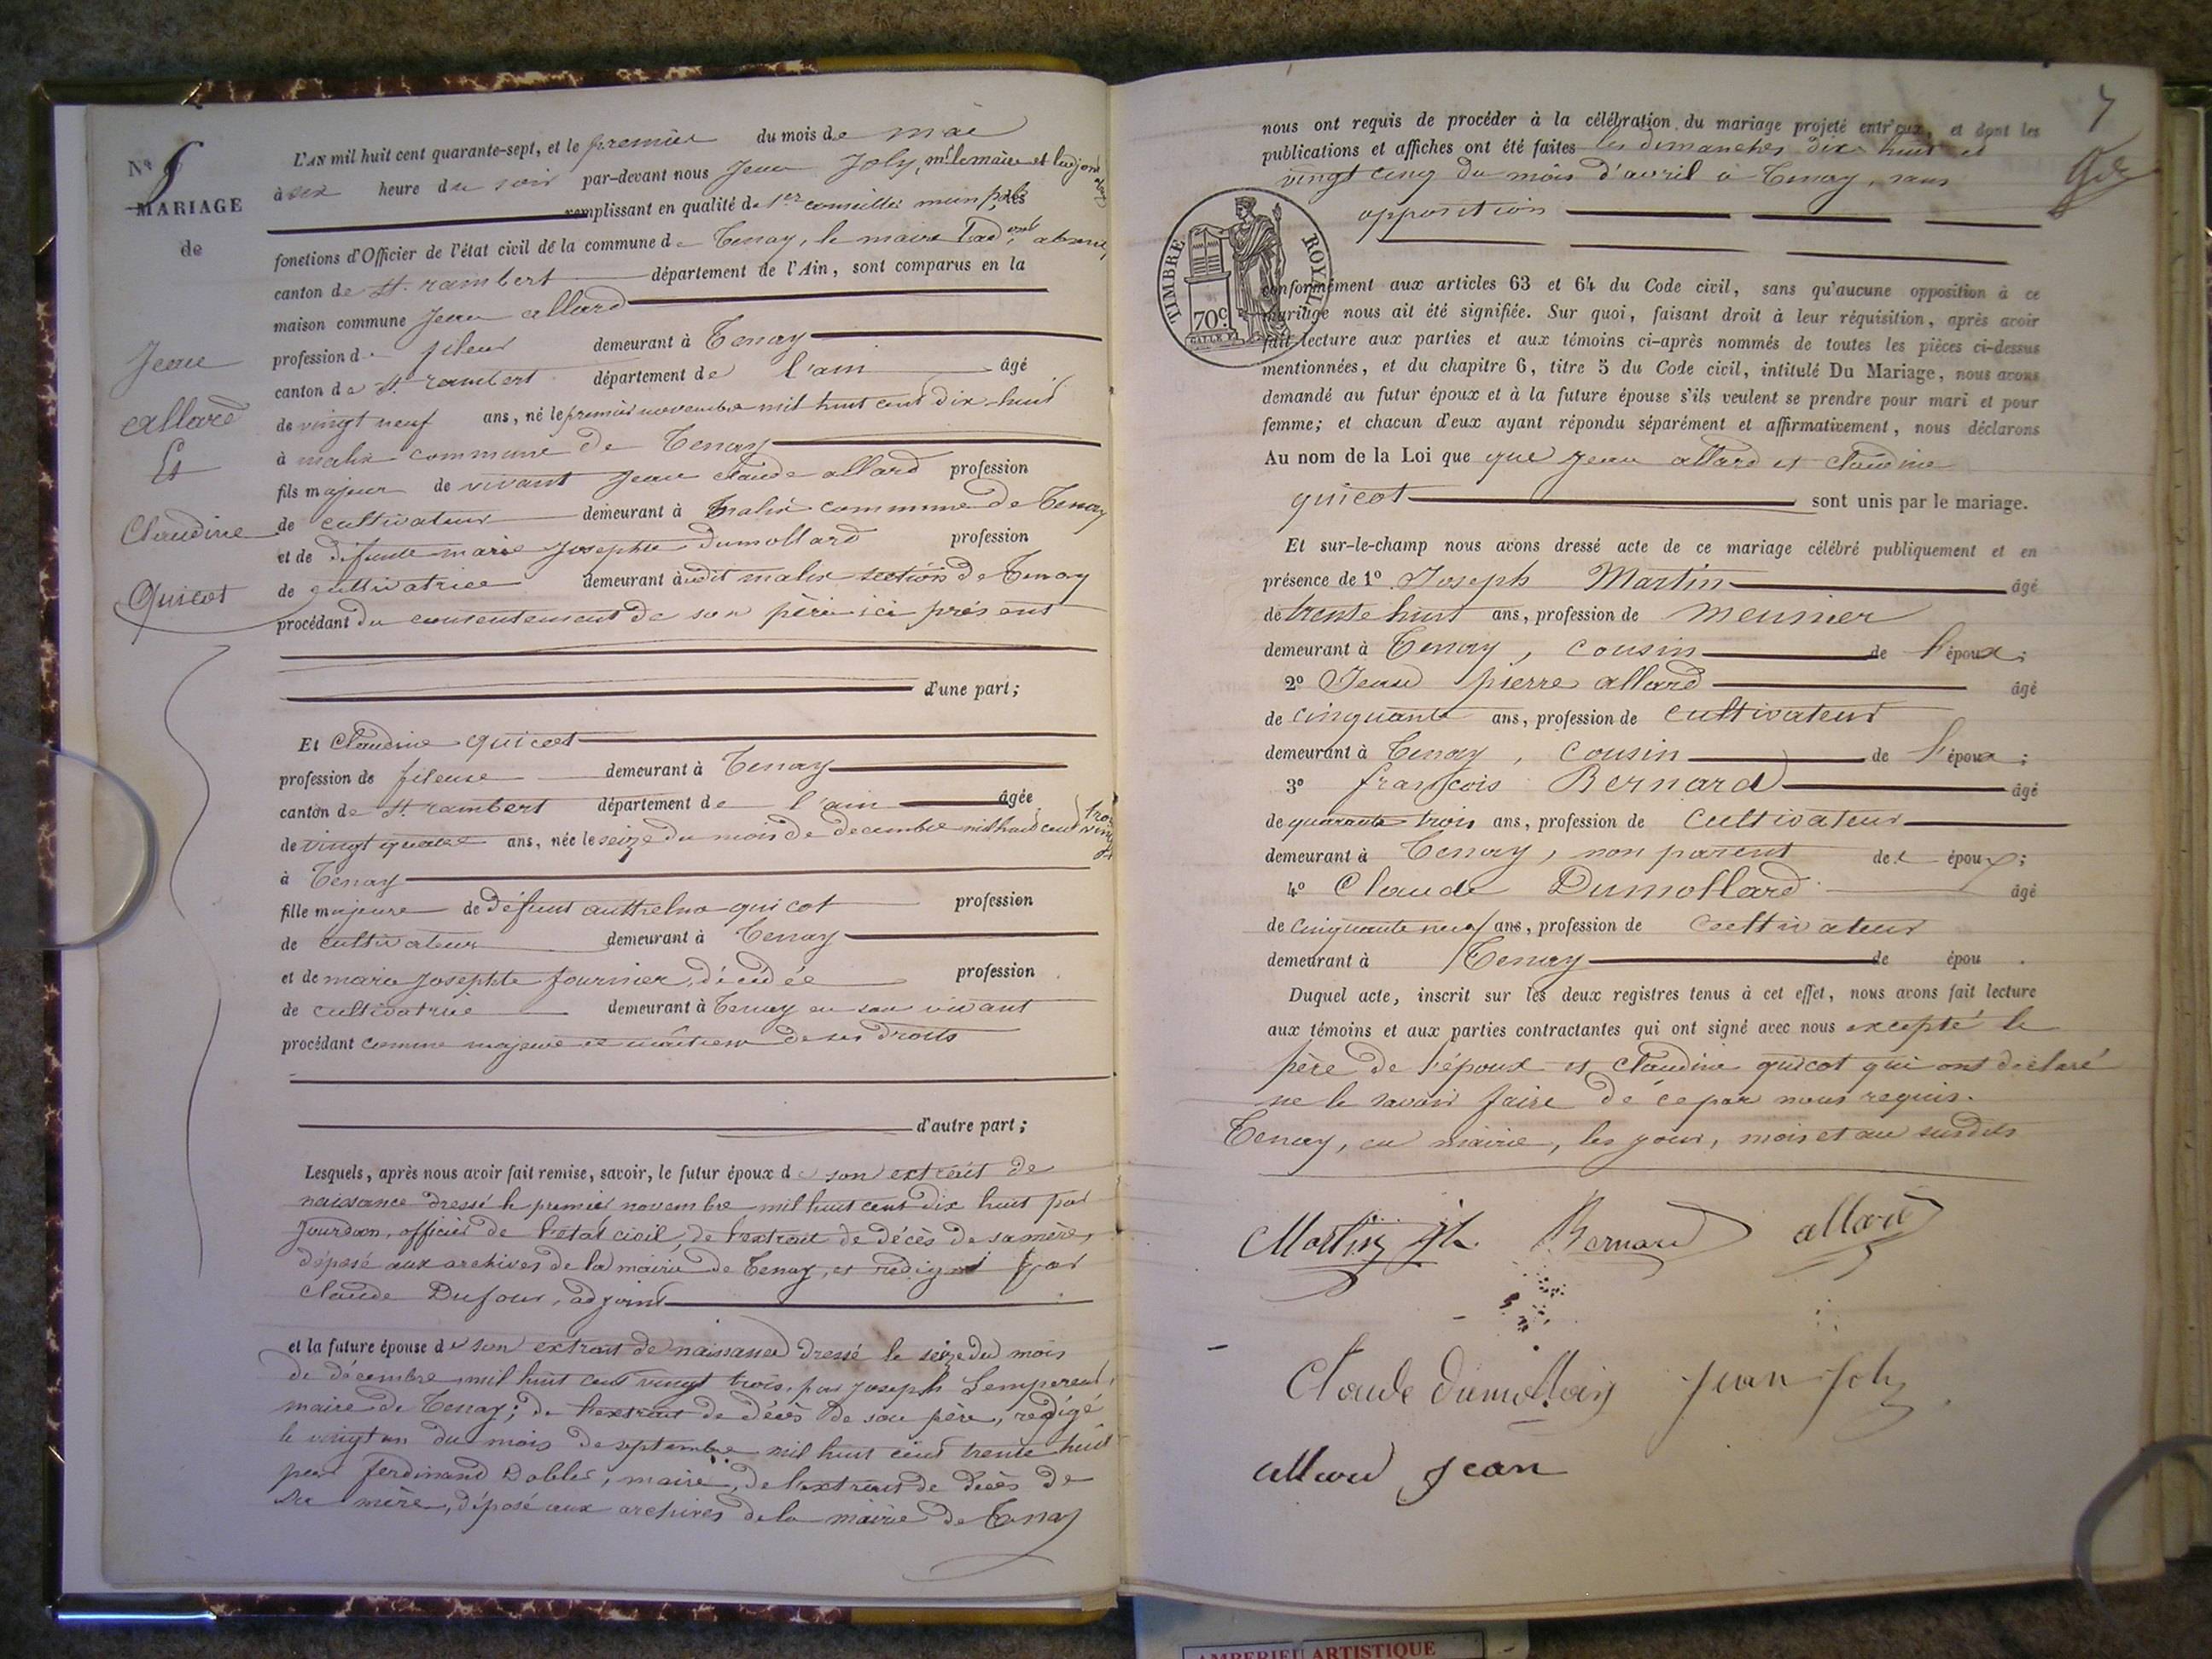 N° 5
MARIAGE
de
Jean
allard
Et
Claudine
Quicot
L'AN mil huit cent quarante-sept, et le premier du mois de mai
à six heure du soir par-devant nous Jean Joly, mr le maire et l'adjoint
remplissant en qualité de 1er conseiller munpal les
fonctions d'Officier de l'état civil de la commune de Tenay, le maire absents
canton de St. rambert département de l'Ain, sont comparus en la
maison commune Jean allard
profession de fileur demeurant à Tenay
canton de St. rambert département de l'ain âgé
de vingt neuf ans, né le premier novembre mil huit cent dix-huit
à malix commune de Tenay
fils majeur de vivant Jean claude allard profession
de cultivateur demeurant à malix commune de Tenay
et de défunte marie Josephte Dumollard profession
de cultivatrice demeurant audit malix section de Tenay
procédant du consentement de son père ici présent
d'une part;
Et Claudine quicot
profession de fileuse demeurant à Tenay
canton de St. rambert département de l'ain âgée
de vingt quatre ans, née le seize du mois de decembre mil huit cent vingt trois
à Tenay
fille majeure de défunt anthelme quicot profession
de cultivateur demeurant à Tenay
et de marie Josephte fournier, décédée profession
de cultivatrice demeurant à Tenay en son vivant
procédant comme majeure et maîtresse de ses droits
d'autre part;
Lesquels, après nous avoir fait remise, savoir, le futur époux de son extrait de
naissance dressé le premier novembre mil huit cent dix huit par
Jourdan, officier de l'état civil, de l'extrait de décès de sa mère,
déposé aux archives de la mairie de Tenay, et redigé par
Claude Dufour, adjoint
et la future épouse de son extrait de naissance dressé le seize du mois
de décembre mil huit cent vingt trois, par Joseph Lempereur,
maire de Tenay; de l'extrait de décès de son père, redigé
le vingt un du mois de septembre mil huit cent trente huit
par ferdinand Dobler, maire, de l'extrait de décès de
sa mère, déposé aux archives de la mairie de Tenay
7
nous ont requis de procéder à la célébration du mariage projeté entr'eux, et dont les
publications et affiches ont été faites les dimanches dix huit et
vingt cinq du mois d'avril à Tenay, sans
opposition
TIMBRE ROYAL
70c.
conformément aux articles 63 et 64 du Code civil, sans qu'aucune opposition à ce
mariage nous ait été signifiée. Sur quoi, faisant droit à leur réquisition, après avoir
fait lecture aux parties et aux témoins ci-après nommés de toutes les pièces ci-dessus
mentionnées, et du chapitre 6, titre 5 du Code civil, intitulé Du Mariage, nous avons
demandé au futur époux et à la future épouse s'ils veulent se prendre pour mari et pour
femme; et chacun d'eux ayant répondu séparément et affirmativement, nous déclarons
Au nom de la Loi que que Jean allard et Claudine
quicot sont unis par le mariage.
Et sur-le-champ nous avons dressé acte de ce mariage célébré publiquement et en
présence de 1° Joseph Martin âgé
de trente huit ans, profession de meunier
demeurant à Tenay, cousin de l'époux;
2° Jean pierre allard âgé
de cinquante ans, profession de cultivateur
demeurant à Tenay, cousin de l'époux;
3° françois Bernard âgé
de quarante trois ans, profession de cultivateur
demeurant à Tenay, non parent de l époux;
4° Claude Dumollard âgé
de cinquante neuf ans, profession de cultivateur
demeurant à Tenay de épou .
Duquel acte, inscrit sur les deux registres tenus à cet effet, nous avons fait lecture
aux témoins et aux parties contractantes qui ont signé avec nous excepté le
père de l'époux et Claudine quicot qui ont déclaré
ne le savoir faire de ce par nous requis.
Tenay, en mairie, les jour, mois et an susdits
Martin Jh. Bernard allard
Claude dumollard Jean Joly
allard Jean
AMBERIEU ARTISTIQUE